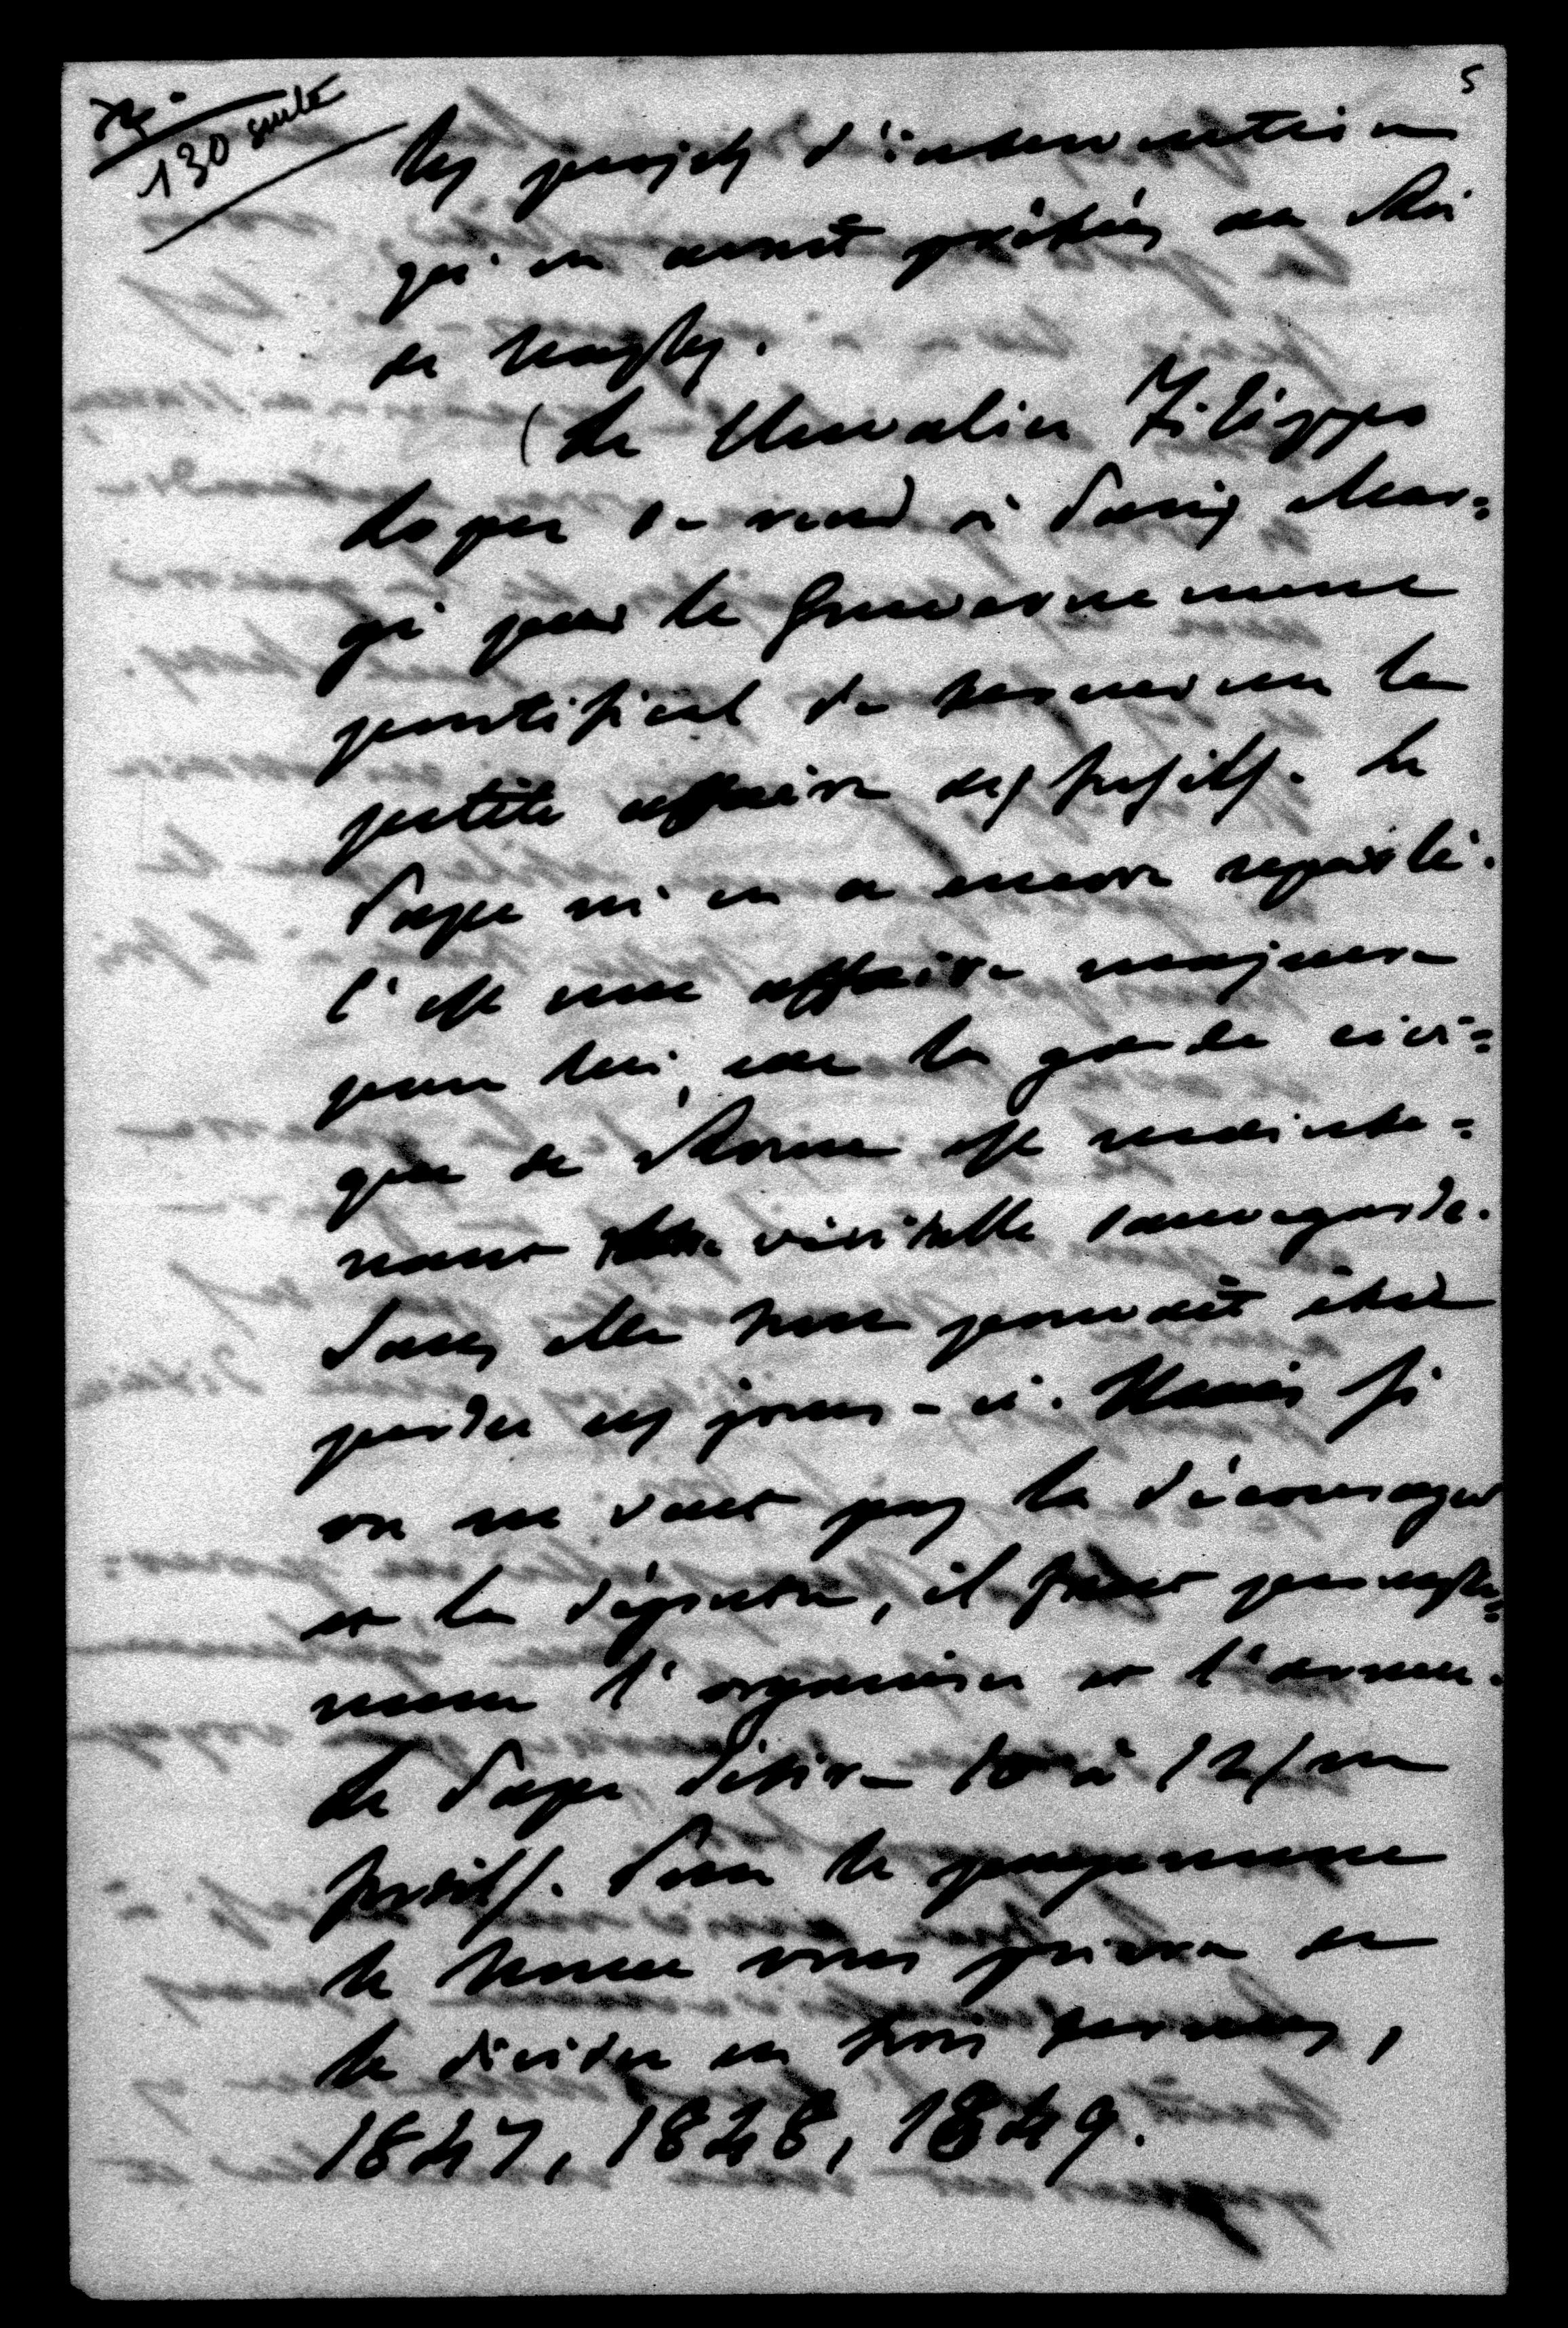 5
130 suite
les projets d'intervention
qu'on avait prêtés au Roi
de Naples.
(Le Chevalier Filippo
Lopez se rend à Paris char=
gé par le Gouvernement
pontifical de terminer la
petite affaire des fusils. Le
Pape m'en a encore reparlé.
C'est une affaire majeure
pour lui, car la garde civi=
que de Rome est mainte=
nant sa véritable sauvegarde.
Sans elle tout pouvait être
perdu ces jours-ci. Mais si
on ne veut pas la décourager
et la dépiter, il faut prompte=
ment l'organiser et l'armer.
Le Pape désire 10 à 12/m
fusils. Pour le payement
le Nonce vous priera de
le diviser en trois années,
1847, 1848, 1849.